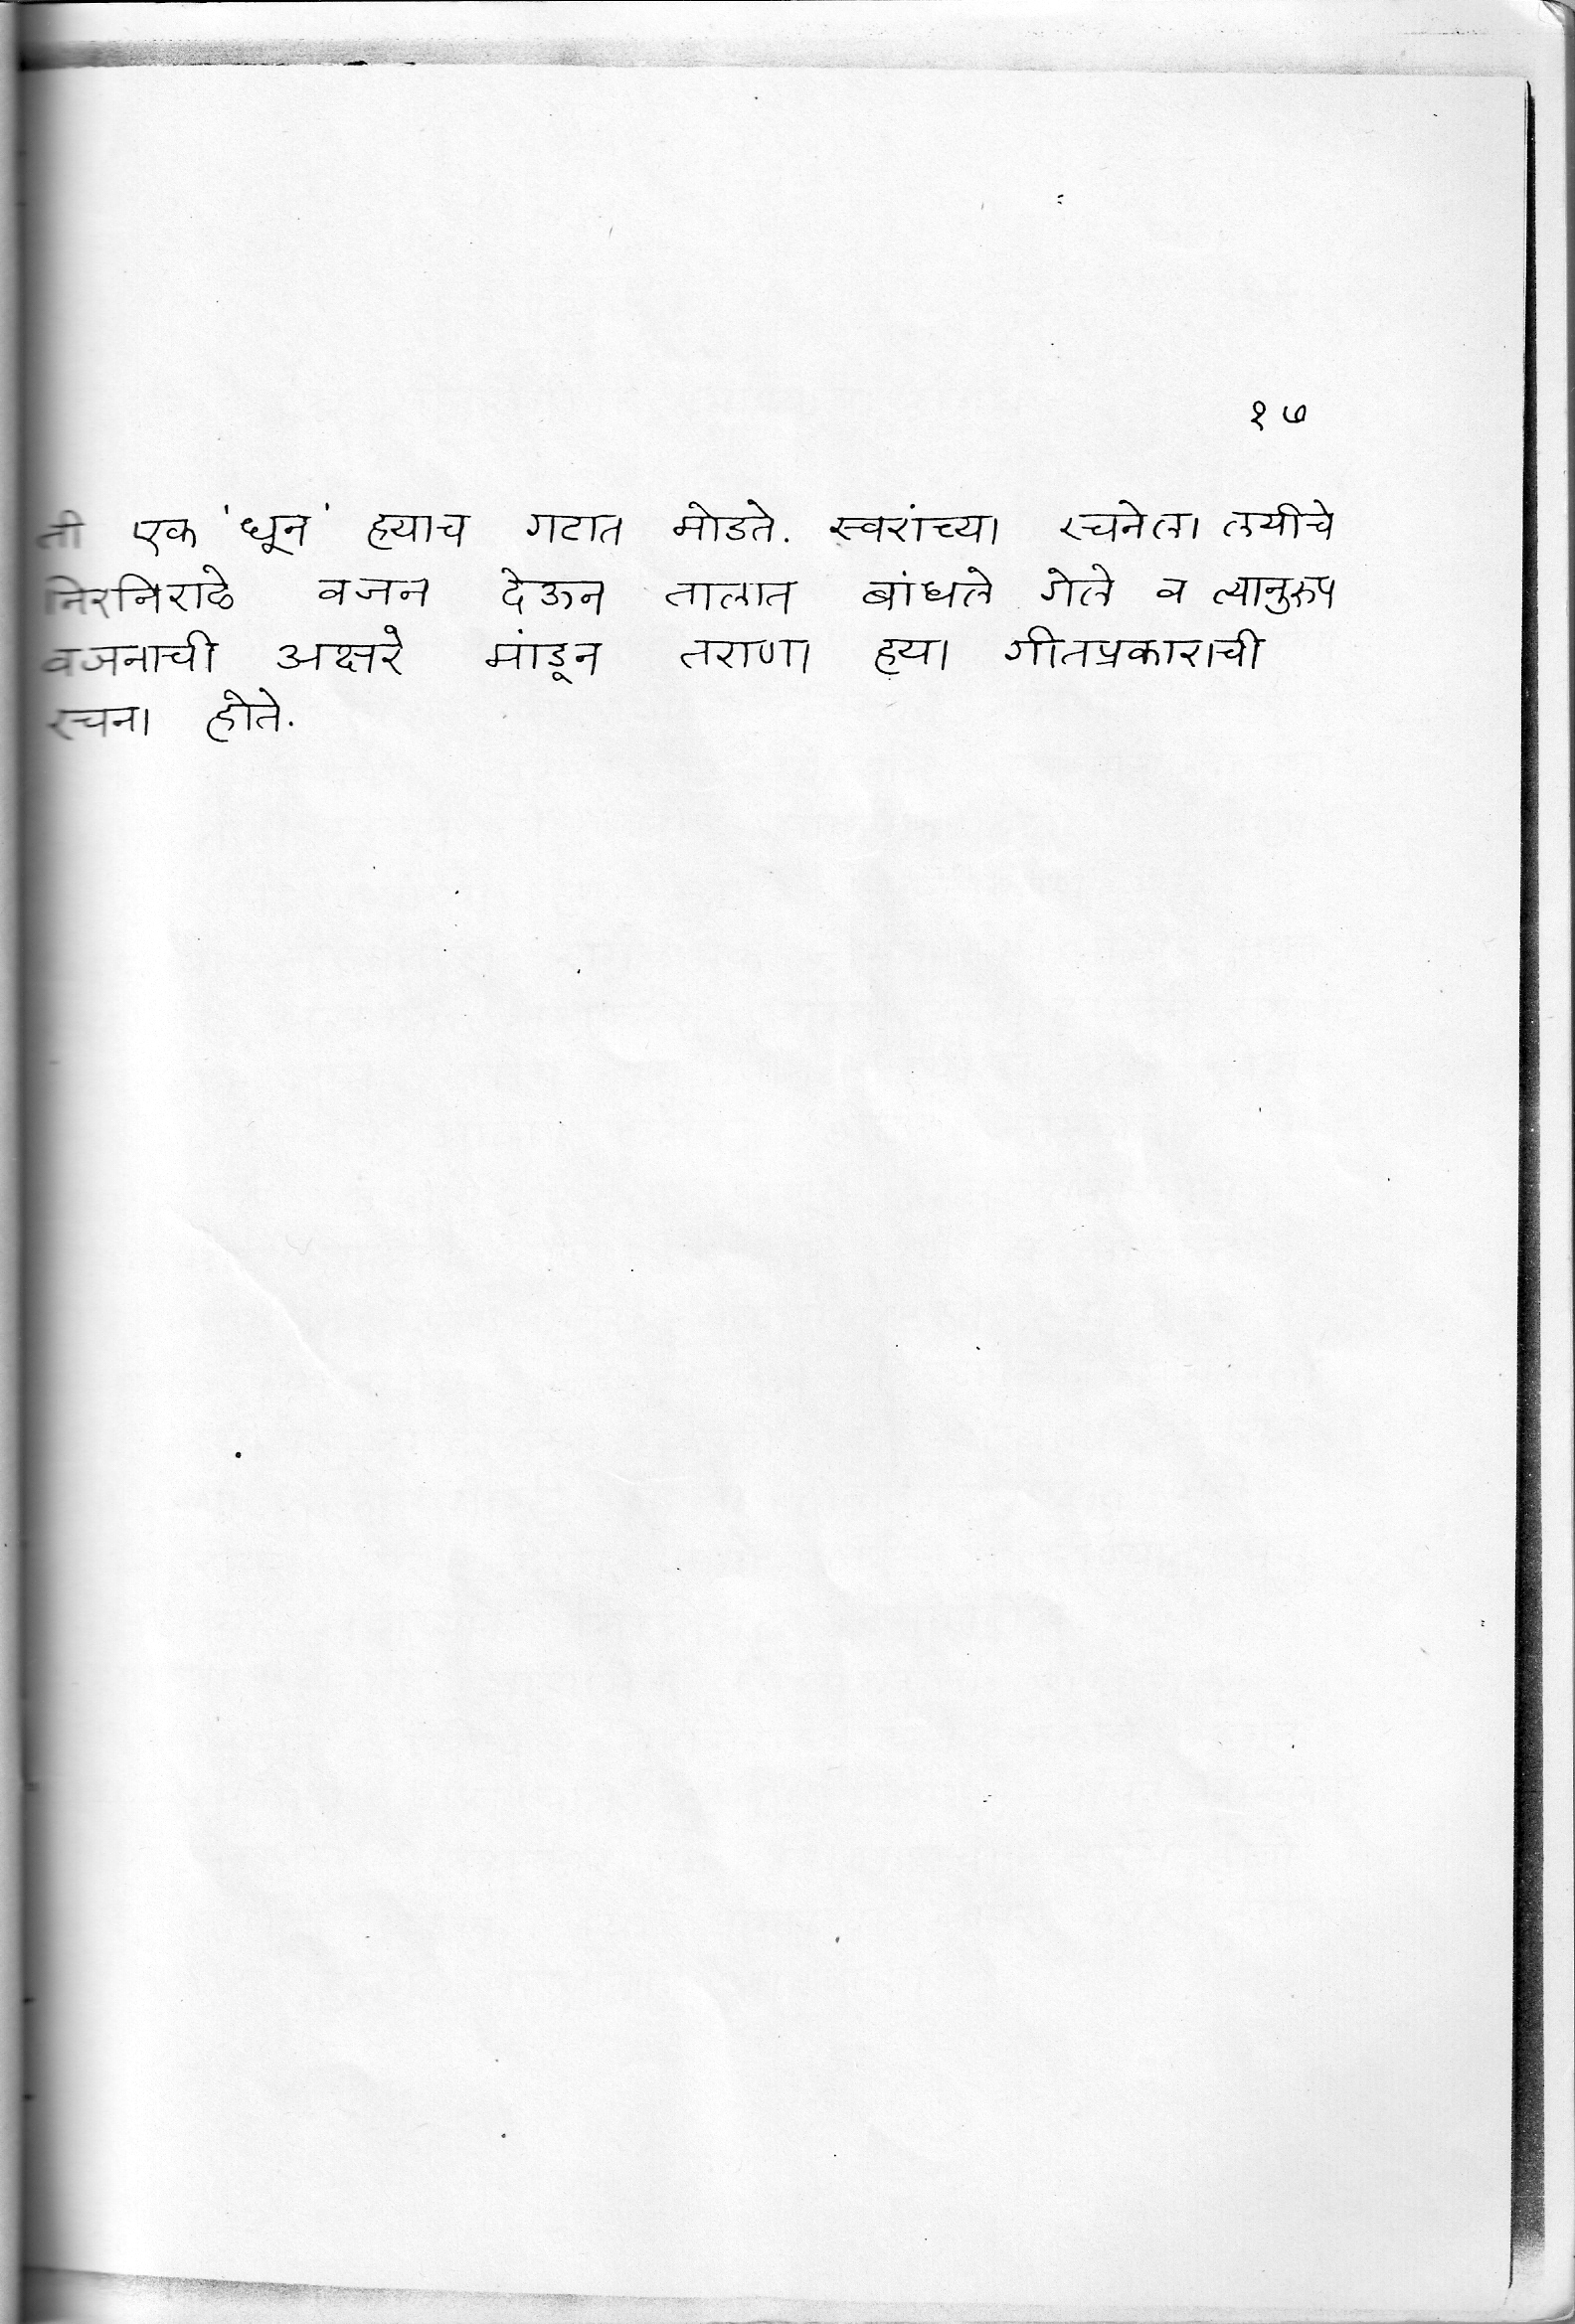 १७
ती एक 'धून' ह्याच गटात मोडते. स्वरांच्या रचनेला लयीचे
निरनिराळे वजन देऊन तालात बांधले गेले व त्यानुरुप
वजनाची अक्षरे मांडून तराणा ह्या गीतप्रकाराची
रचना होते.